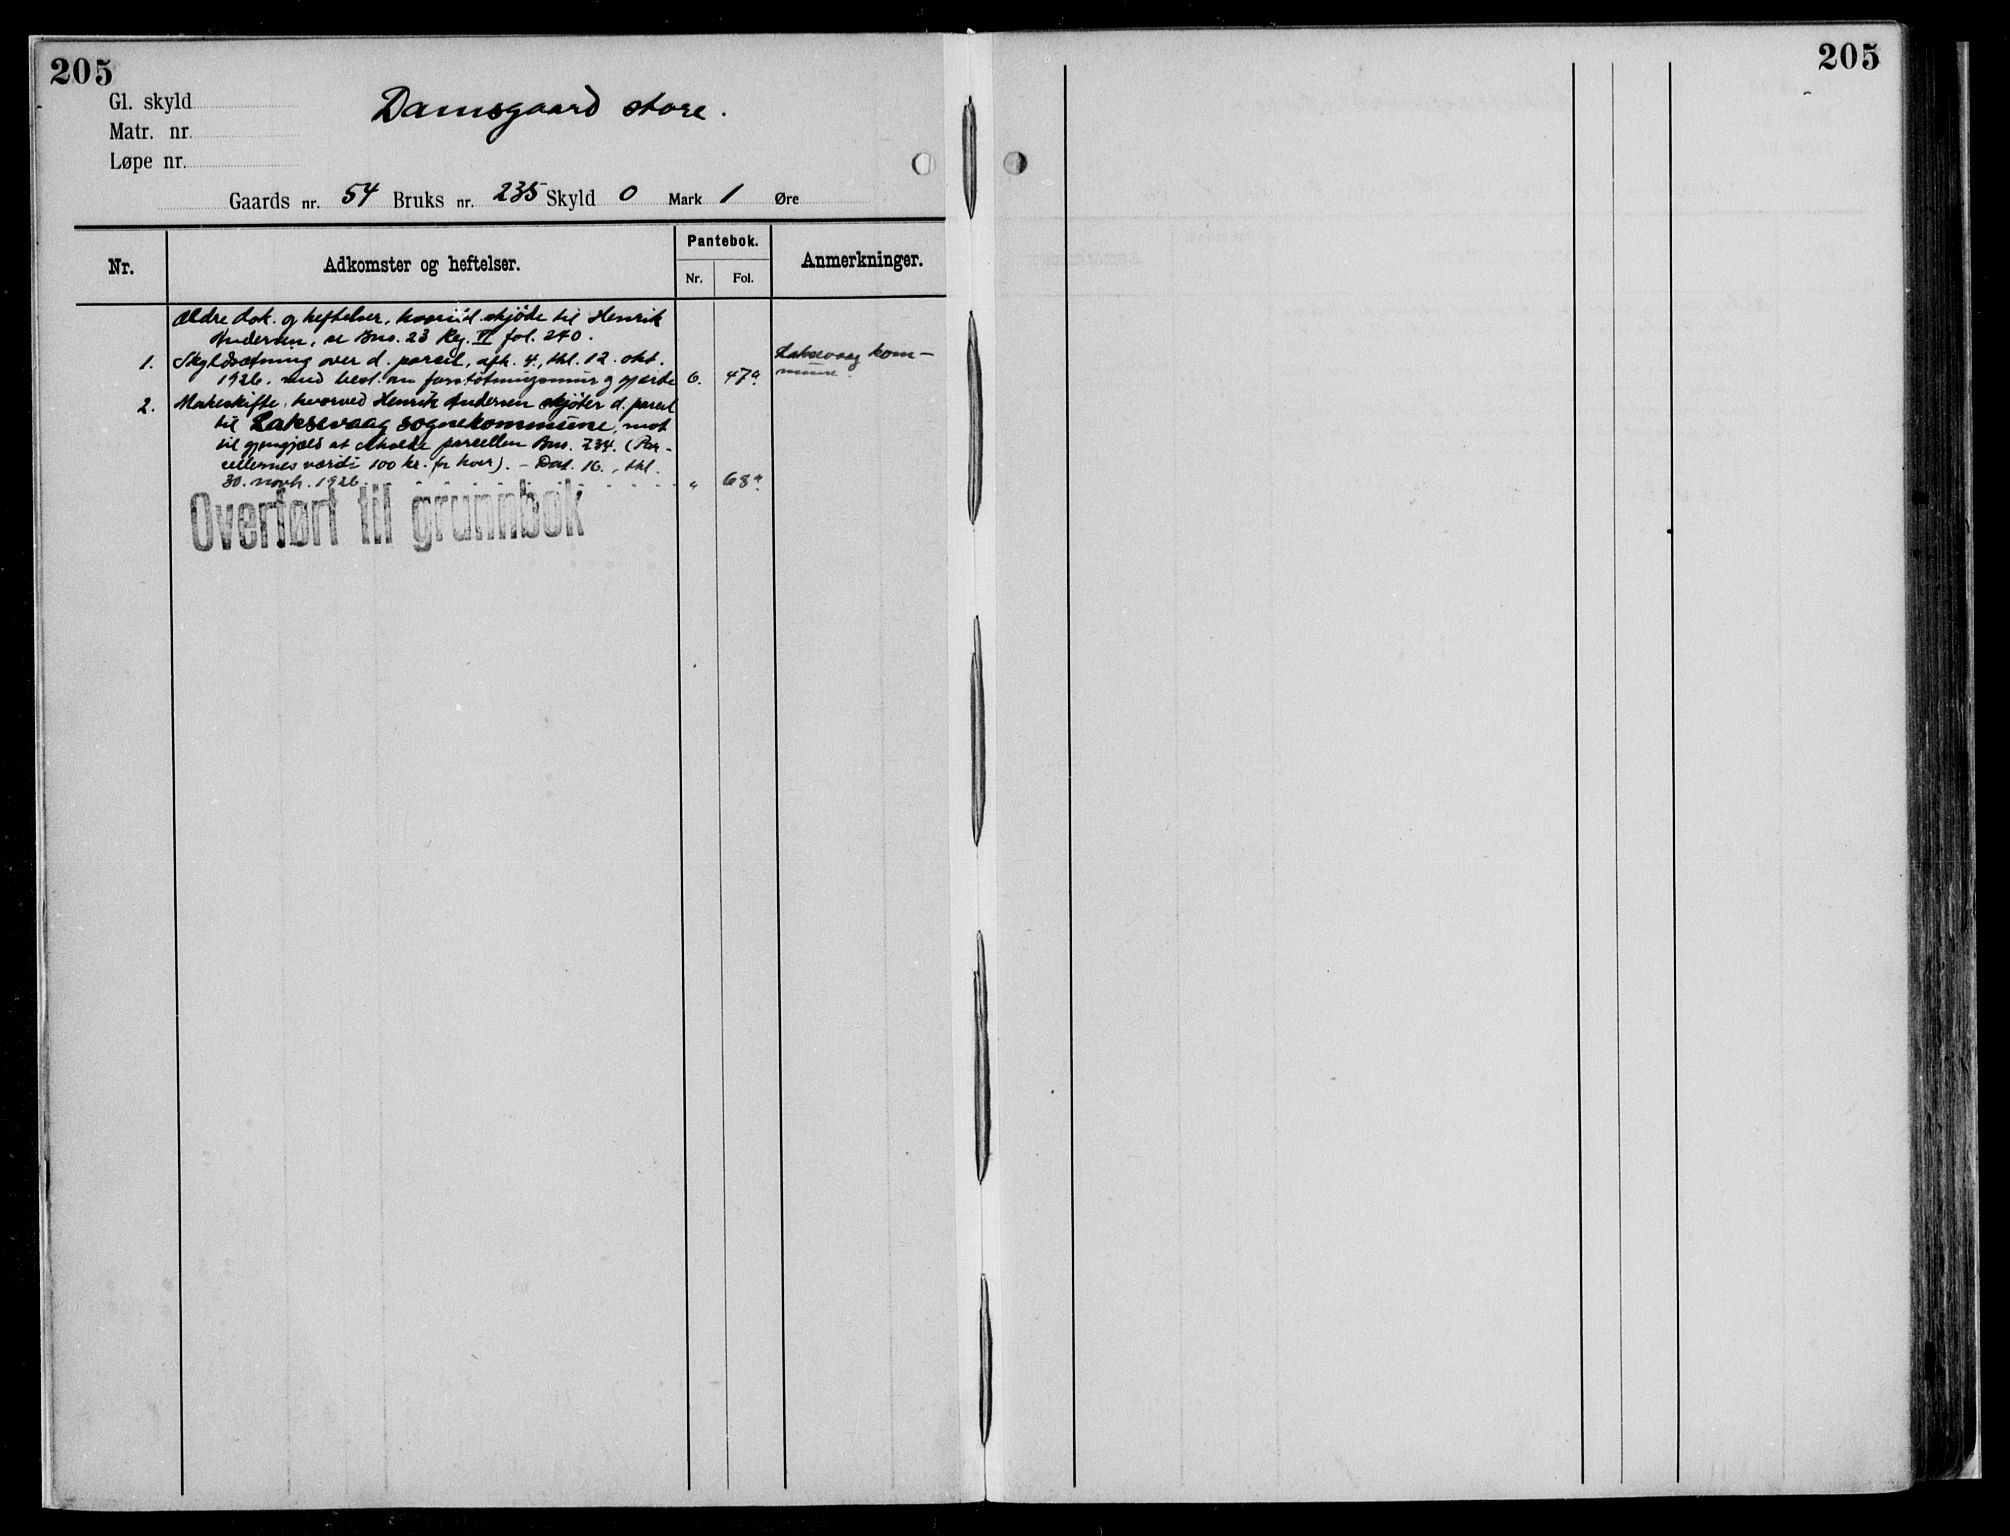 205
Gl. skyld
Matr. nr.
Løpe nr.
Damsgaard store.
Gaards nr. 54 Bruks nr. 235 Skyld 0 Mark 1 Øre
Nr.
Adkomster og heftelser.
Pantebok.
Nr. Fol.
Anmerkninger.
Ældre dok. og heftelser, hvoriid skjøde til Henrik
Andersen, se Bno. 23 Reg. VI fol. 240.
1. Skyldsætning over d. parcel, afh. 4., thl. 12. okt.
1926. med best. om forstøtningsmur og gjærde 6. 47a
Laksevaag kom-
mune.
2. Makeskifte, hvorved Henrik Andersen skjøter d. parcel
til Laksevaag sognekommune, mot
til gjengjæld at erholde parcellen Bno. 234. (Par-
cellernes værdi 100 kr. for hver). - Dat. 16., thl.
30. novb. 1926. . . . . . . . . . . . " 68a
Overført til grunnbok
205